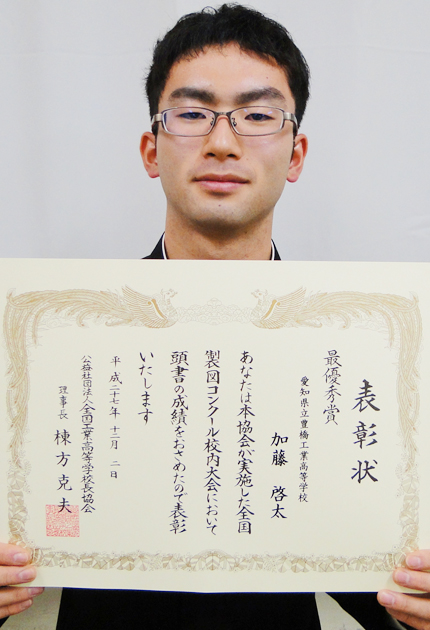 表彰状
最優秀賞
愛知県立豊橋工業高等学校
加藤 啓太
あなたは本協会が実施した全国
製図コンクール校内大会において
頭書の成績をおさめたので表彰
いたします
平成二十七年 十二月 二日
公益社団法人全国工業高等学校長協会
理事長 棟方克夫